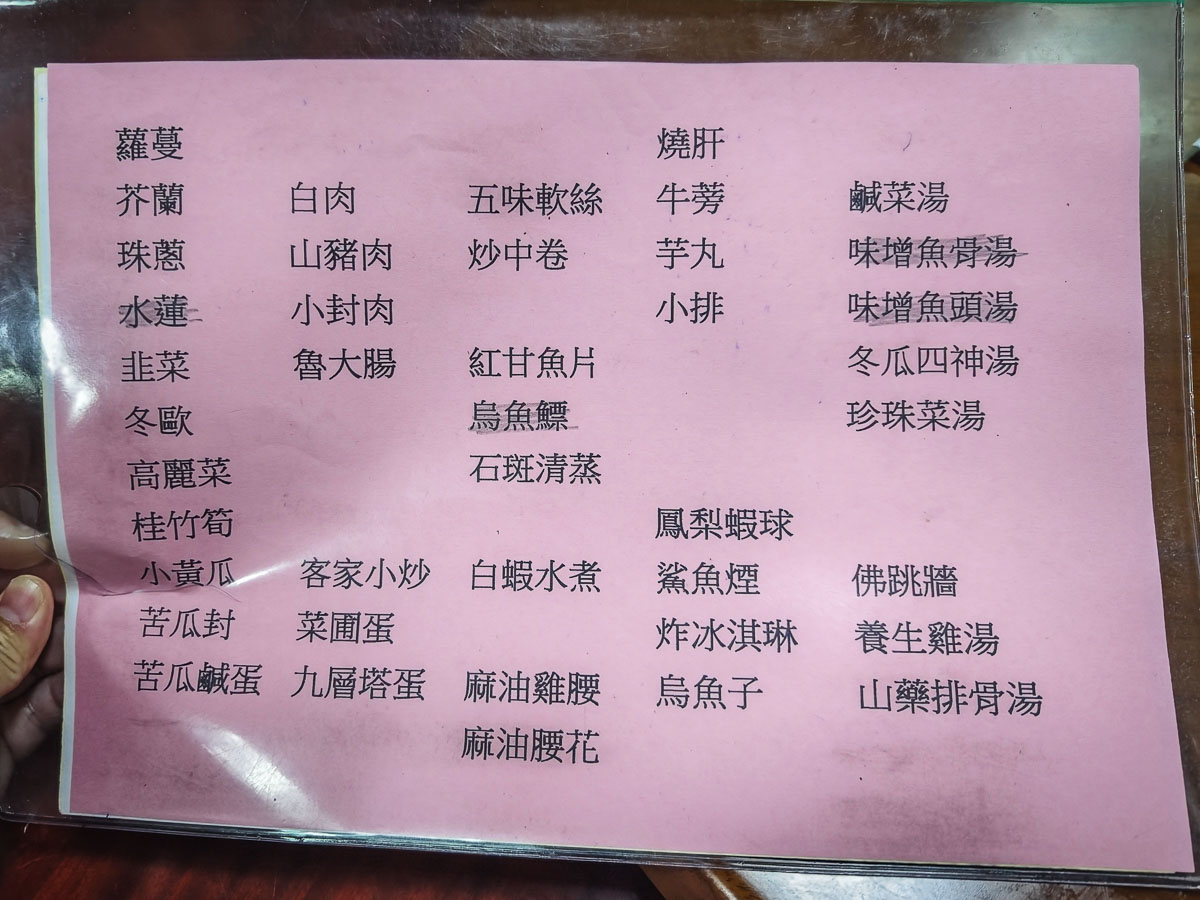 蘿蔓 燒肝
芥蘭 白肉 五味軟絲 牛蒡 鹹菜湯
珠蔥 山豬肉 炒中卷 芋丸 味增魚骨湯
水蓮 小封肉 小排 味增魚頭湯
韭菜 魯大腸 紅甘魚片 冬瓜四神湯
冬歐 烏魚鰾 珍珠菜湯
高麗菜 石斑清蒸
桂竹筍 鳳梨蝦球
小黃瓜 客家小炒 白蝦水煮 鯊魚煙 佛跳牆
苦瓜封 菜圃蛋 炸冰淇琳 養生雞湯
苦瓜鹹蛋 九層塔蛋 麻油雞腰 烏魚子 山藥排骨湯
麻油腰花